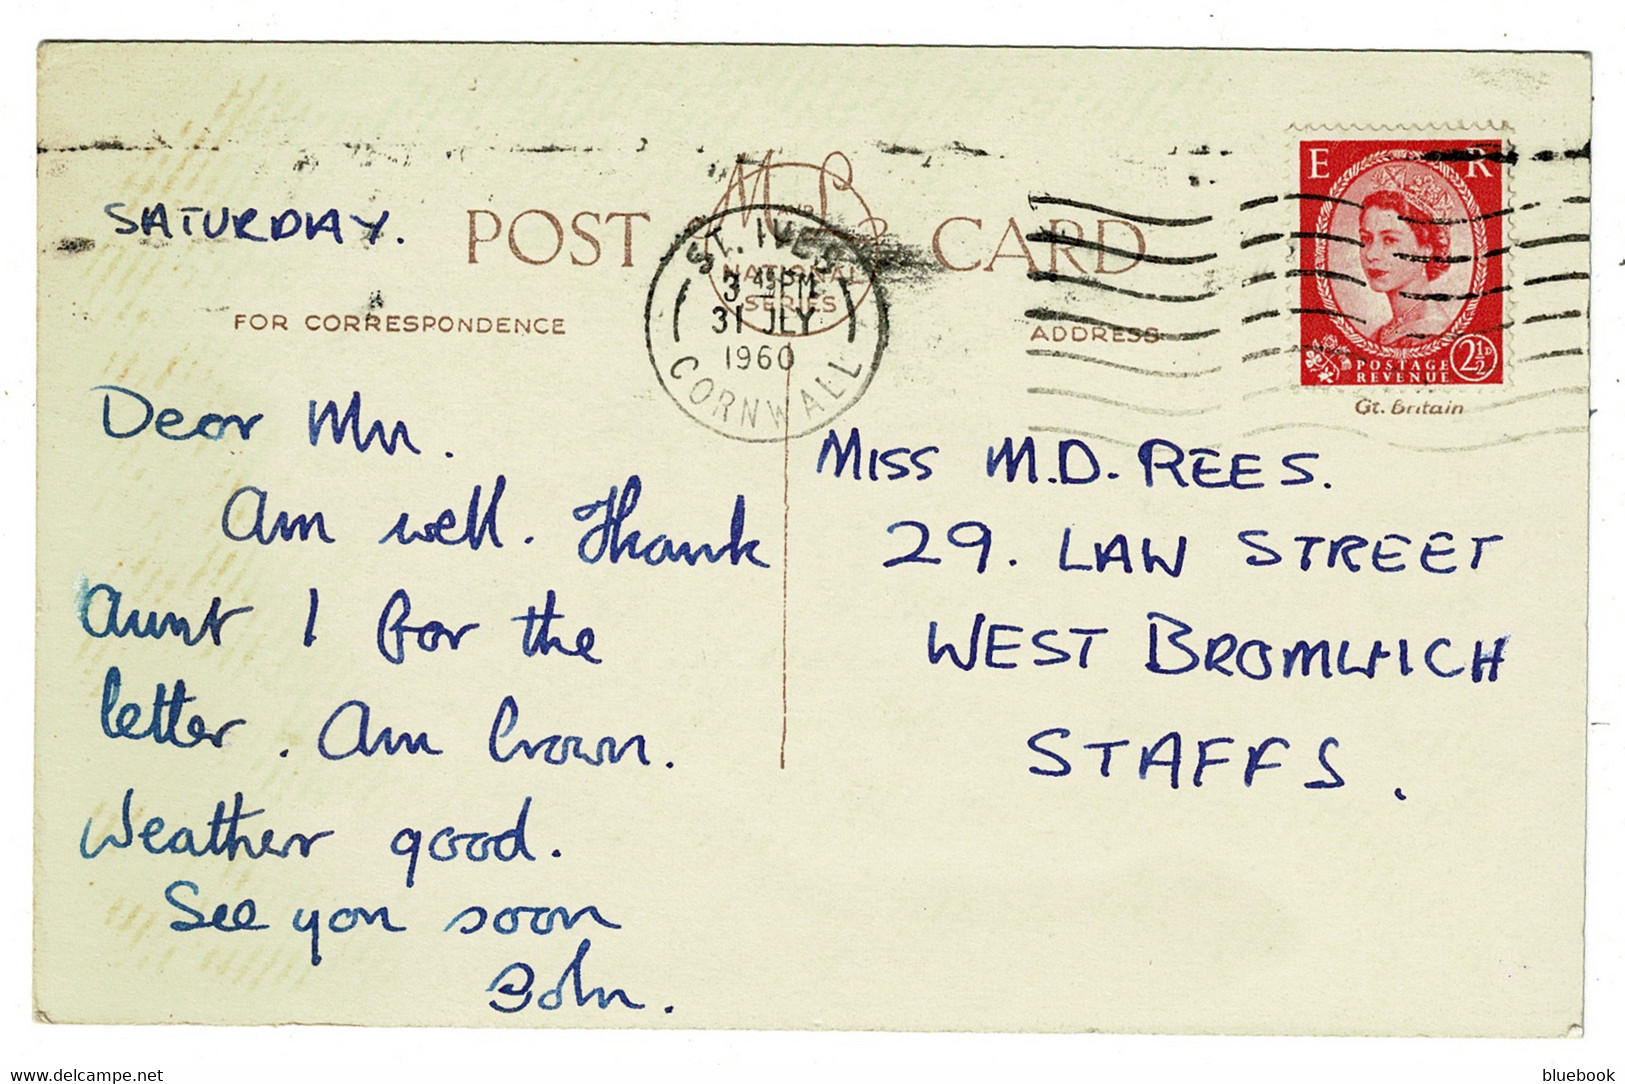 SATURDAY.
POST CARD
M AND L
NATIONAL
SERIES
ST. IVES
3 45 PM
31 JLY
1960
CORNWALL
E R
POSTAGE
REVENUE
2½D
Gt. Britain
FOR CORRESPONDENCE
ADDRESS
Dear
Am well. Thank
Aunt I for the
letter. Am brown.
Weather good.
See you soon
John.
MISS M.D. REES.
29. LAW STREET
WEST BROMWICH
STAFFS.
delcampe.net
bluebook